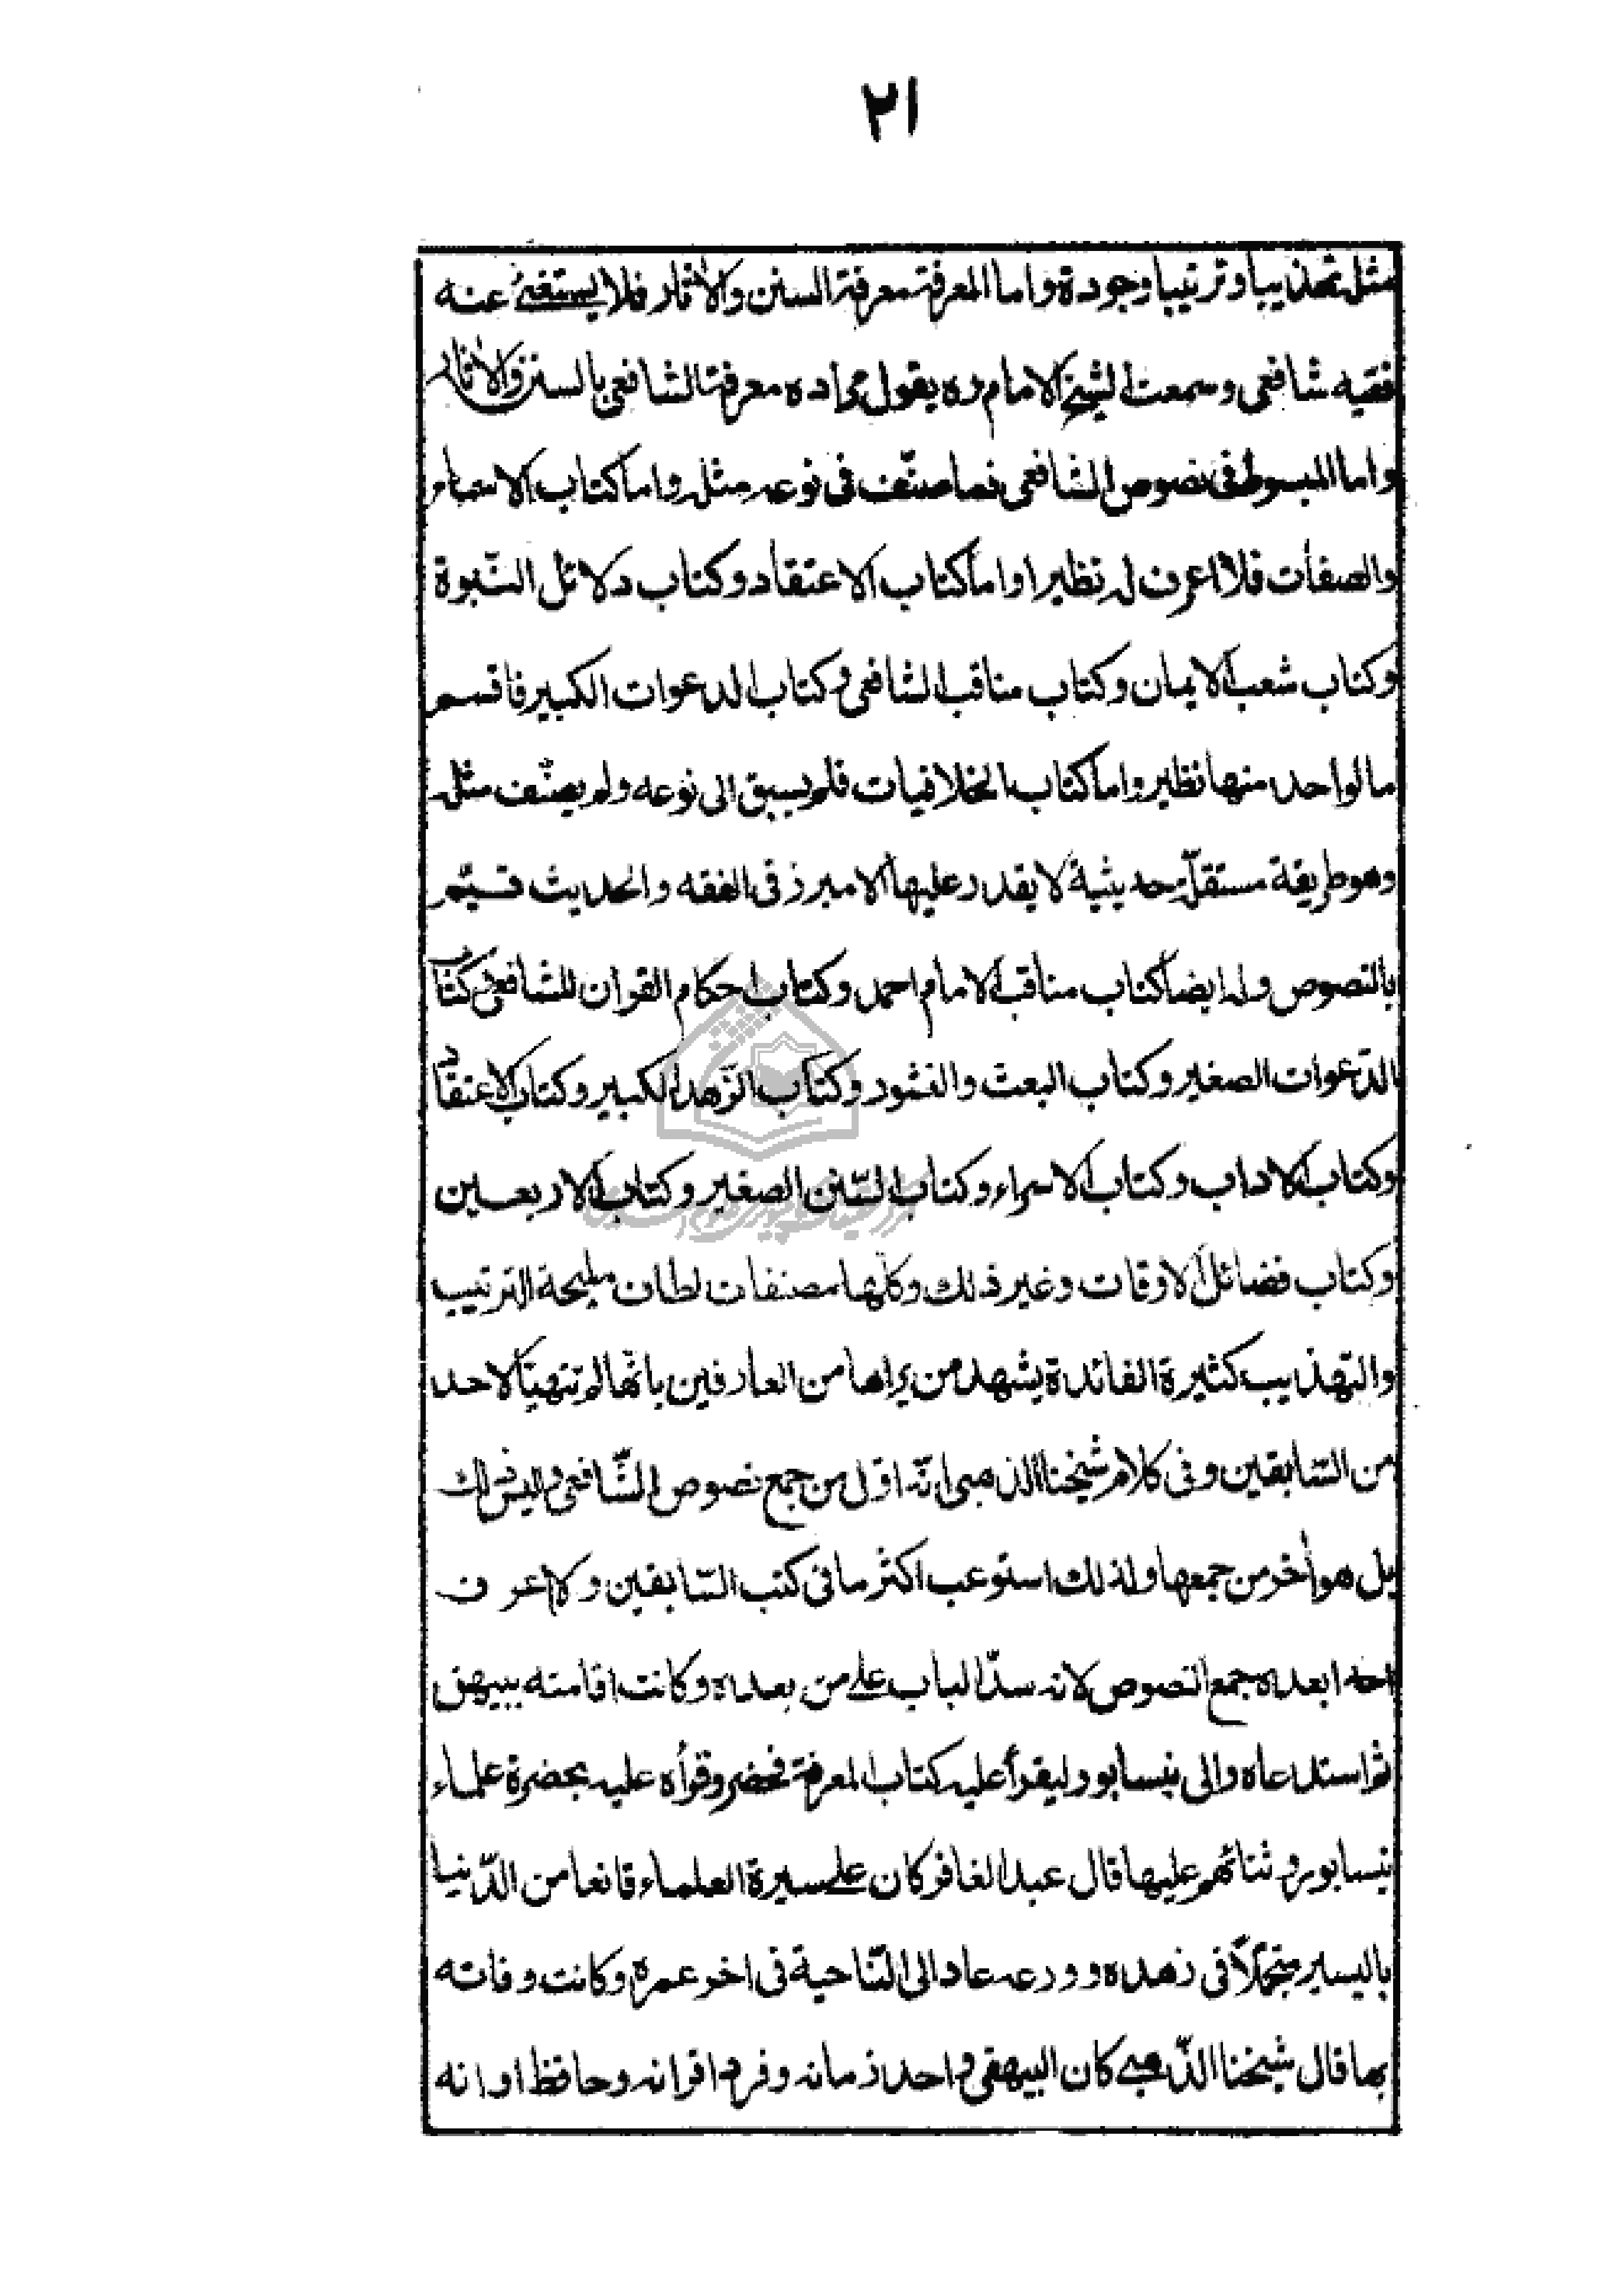 ٢١
مثله تهذيبا وترتيبا وجودة واما المعرفة معرفة السنن والأثار فلا يستغنى عنه
فقيه شافعى وسمعت الشيخ الامام ره يقول مراده معرفة الشافعى بالسنن والأثار
واما المبسوط فى نصوص الشافعى فما صنّف فى نوعه مثله واما كتاب الاسماء
والصفات فلا اعرف له نظيرا واما كتاب الاعتقاد وكتاب دلائل النّبوة
وكتاب شعب الايمان وكتاب مناقب الشافعى وكتاب الدعوات الكبير فاقسم
ما لواحد منها نظير واما كتاب الخلافيات فلم يسبق الى نوعه ولم يصنّف مثله
وهو طريقة مستقلّة حديثية لا يقدر عليها الا مبرز فى الفقه والحديث قيّم
بالنصوص وله ايضا كتاب مناقب الامام احمد وكتاب احكام القران للشافعى وكتاب
الدّعوات الصغير وكتاب البعث والنشور وكتاب الزّهد الكبير وكتاب الاعتقاد
وكتاب الاداب وكتاب الاسراء وكتاب السّنن الصغير وكتاب الاربعين
وكتاب فضائل الاوقات وغير ذلك وكلّها مصنفات لطاف مليحة الترتيب
والتهذيب كثيرة الفائدة يشهد من يراها من العارفين بانّها لم تتهيّأ لاحد
من السّابقين وفى كلام شيخنا الذهبى انّه اوّل من جمع نصوص الشّافعى وليس كذلك
بل هو أخر من جمعها ولذلك استوعب اكثر ما فى كتب السّابقين ولا اعرف
احدا بعده جمع النصوص لانه سدّ الباب على من بعده وكانت اقامته ببيهق
ثم استدعاه والى نيسابور ليقرأ عليه كتاب المعرفة فحضر وقرأه عليه بحضرة علماء
نيسابور وثنائهم عليها قال عبد الغافر كان على سيرة العلماء قانعا من الدّنيا
باليسير متجمّلاً فى زهده وورعه عاد الى النّاحية فى اخر عمره وكانت وفاته
بها قال شيخنا الذّهبى كان البيهقى واحد زمانه وفرد اقرانه وحافظ اوانه